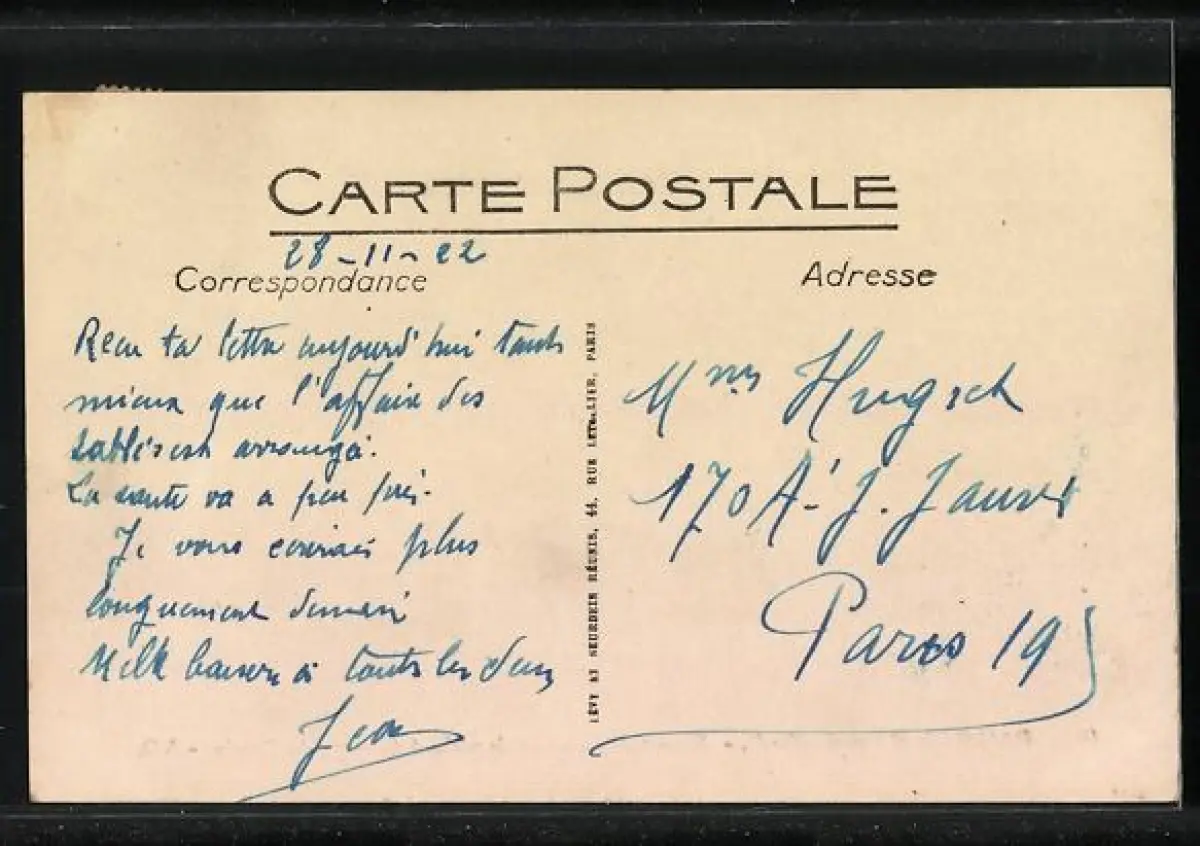 CARTE POSTALE
28-11-22
Correspondance
Recu ta lettre aujourd'hui tants
mieux que l'affaire des
est arrangé.
La sante va a peu près.
Je vous ecrirai plus
longuement demain
Mille baisers à touts les deux
Jean
LÉVY ET NEURDEIN RÉUNIS, 44, RUE LETELLIER, PARIS
Adresse
Mme
170 A. J. Jaurès
Paris 19